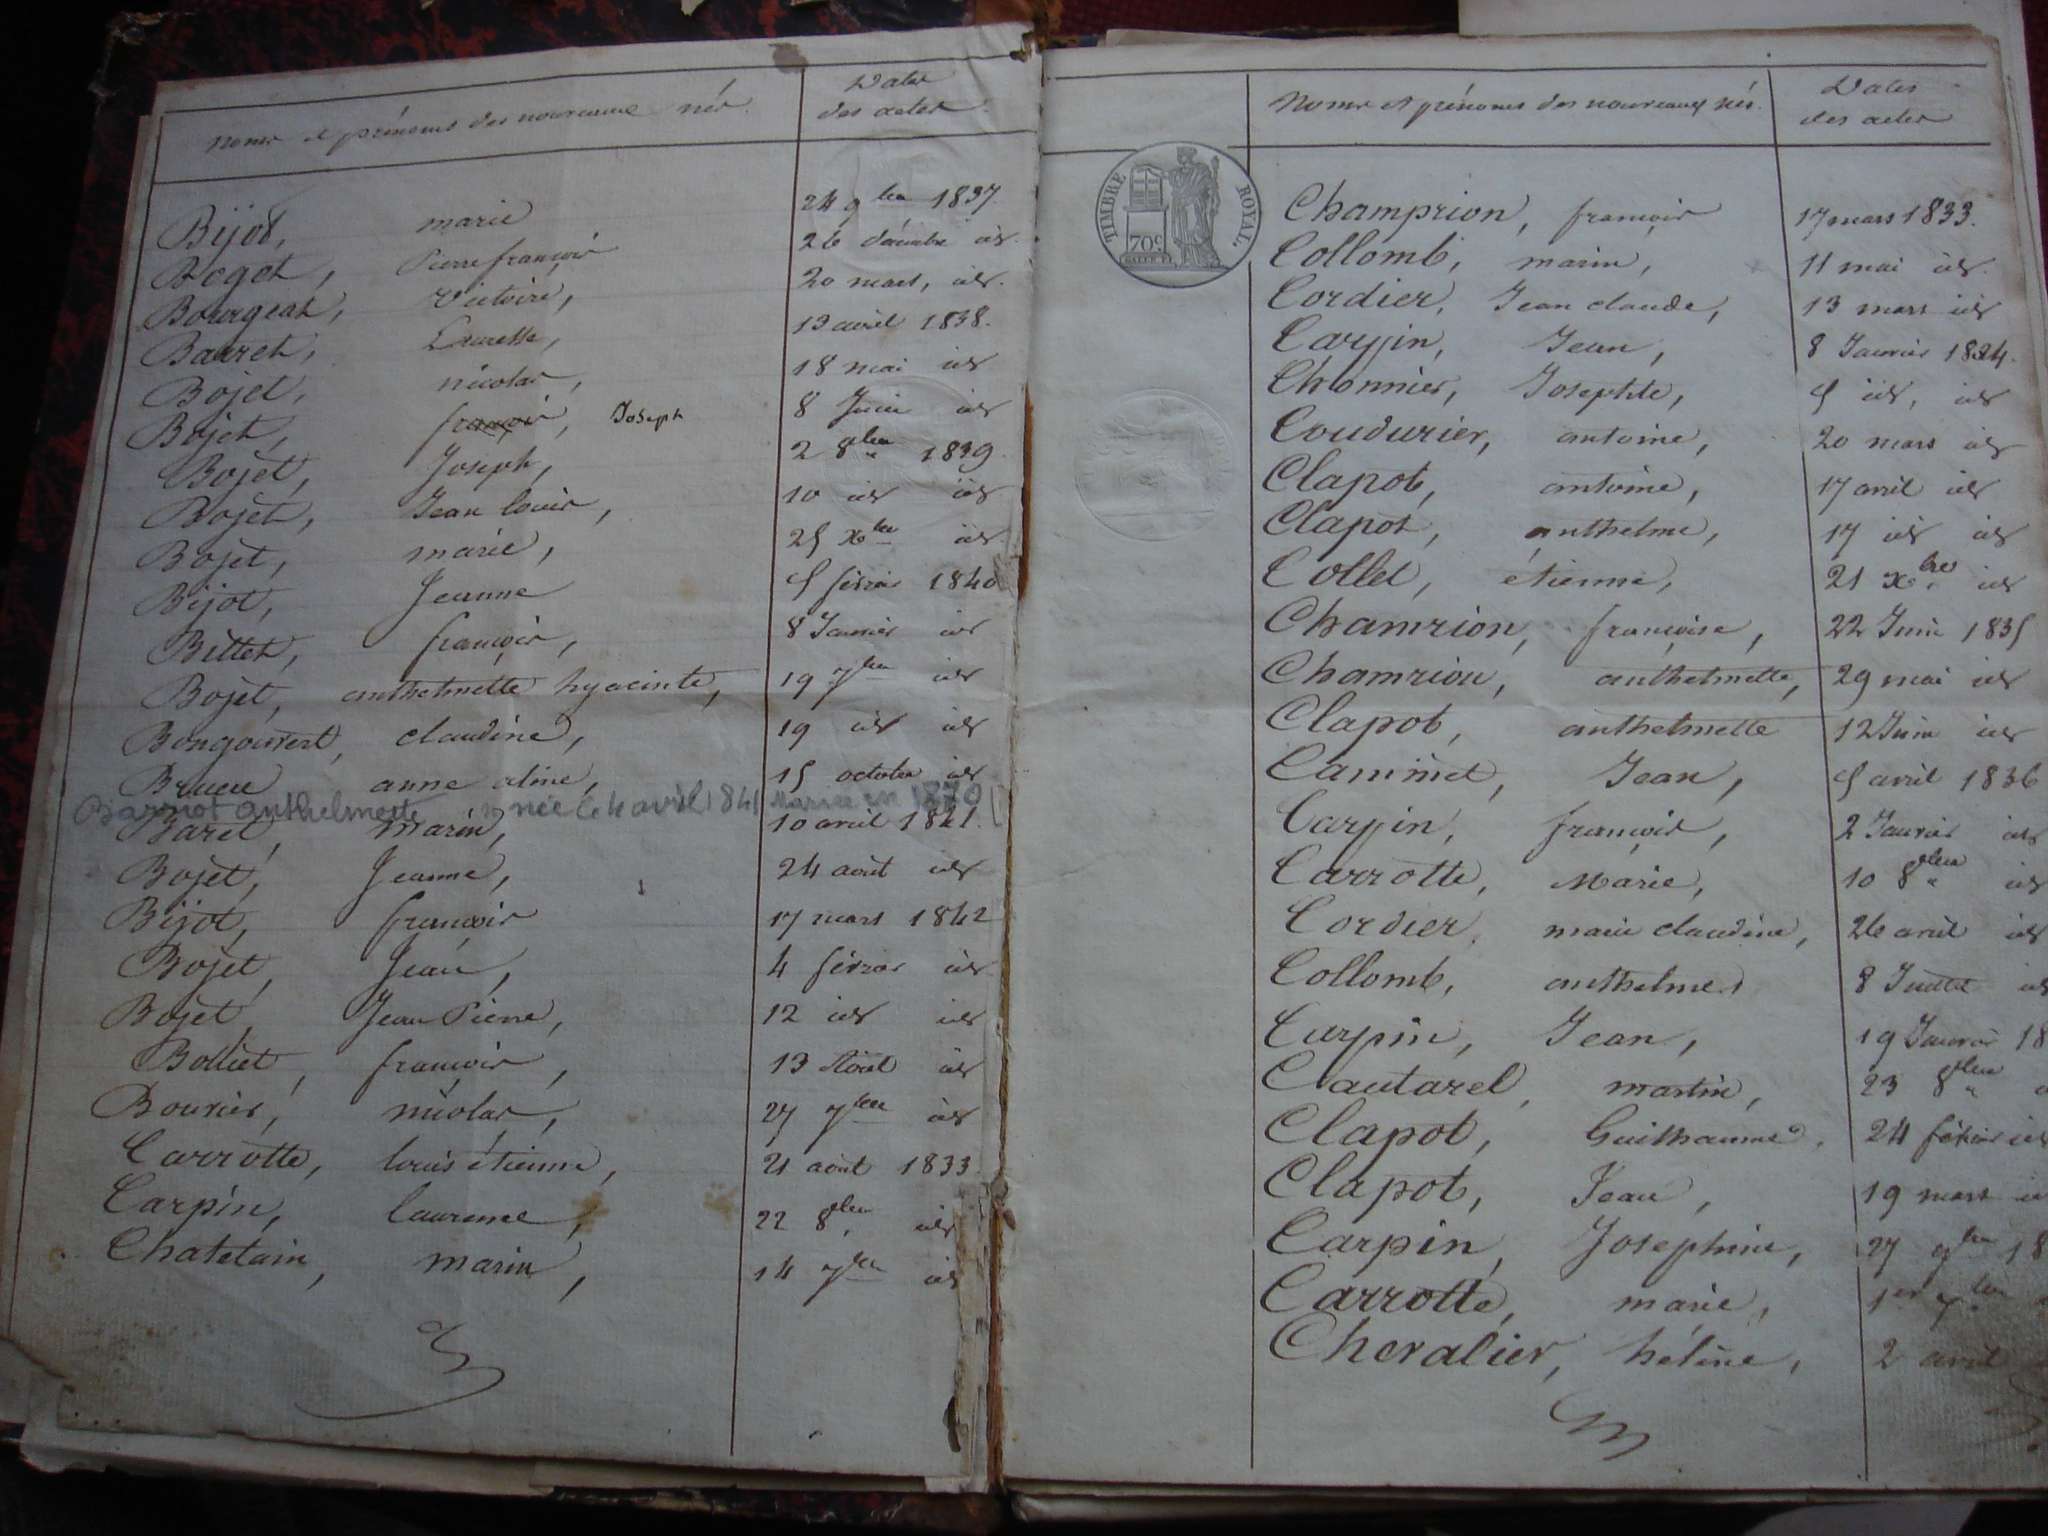 noms et prénoms des nouveaux nés.
Dates
des actes
Bijot, marie 24 9bre 1837.
Boget, Pierre françois 26 décembre id.
Bourgeat, Victoire, 20 mars, id.
Barret, Laurette, 19 avril 1838.
Bojet, nicolas, 18 mai id
Bojet, françois, Joseph 8 Juin id
Bojet, Joseph, 2 8bre 1839
Bojet, Jean louis, 10 id id
Bojet, marie, 25 Xbre id
Bijot, Jeanne 5 février 1840
Billet, françois, 8 Janvier id
Bojet, anthelmette hyacinte, 19 7bre id
Bongouvert, claudine, 19 id id
anne aline, 15 octobre id
Barnot anthelmette née le 4 avril 1841 Mariée en 1870
Baret, marin, 10 avril 1841.
Bojet, Jeanne, 24 août id
Bijot, françois 17 mars 1842
Bojet, Jean, 4 février id
Bojet, Jean Pierre, 12 id id
Bolliet, françois, 13 Avril id
Bouvier, nicolas, 27 7bre id
Carrotte, louis étienne, 21 août 1833
Carpin, laurence, 22 8bre id
Chatelain, marin, 14 7bre id
Noms et prénoms des nouveaux nés.
Dates
des actes
TIMBRE ROYAL.
70c
Champrion, françois 17 mars 1833.
Collomb, marin, 11 mai id.
Cordier, Jean claude, 13 mars id
Carpin, Jean, 8 Janvier 1834.
Chonnier, Josephte, 5 id, id
Coudurier, antoine, 20 mars id
Clapot, antoine, 17 avril id
Clapot, anthelme, 17 id id
Collet, étienne, 21 Xbre id
Chamrion, françoise, 22 Juin 1835
Chamrion, anthelmette, 29 mai id
Clapot, anthelmette 12 Juin id
Caminet, Jean, 5 avril 1836
Carpin, françois, 2 Janvier id
Carrotte, Marie, 10 8bre id
Cordier, marie claudine, 26 avril id
Collomb, anthelme, 8 Juillet id
Carpin, Jean, 19 Janvier 18
Cautarel, martin, 23 8bre
Clapot, Guilhaume, 24 février id
Clapot, Jean, 19 mars id
Carpin, Josephine, 27 9bre 18
Carrotte, marie, 1er 7bre
Chevalier, hélène, 2 avril